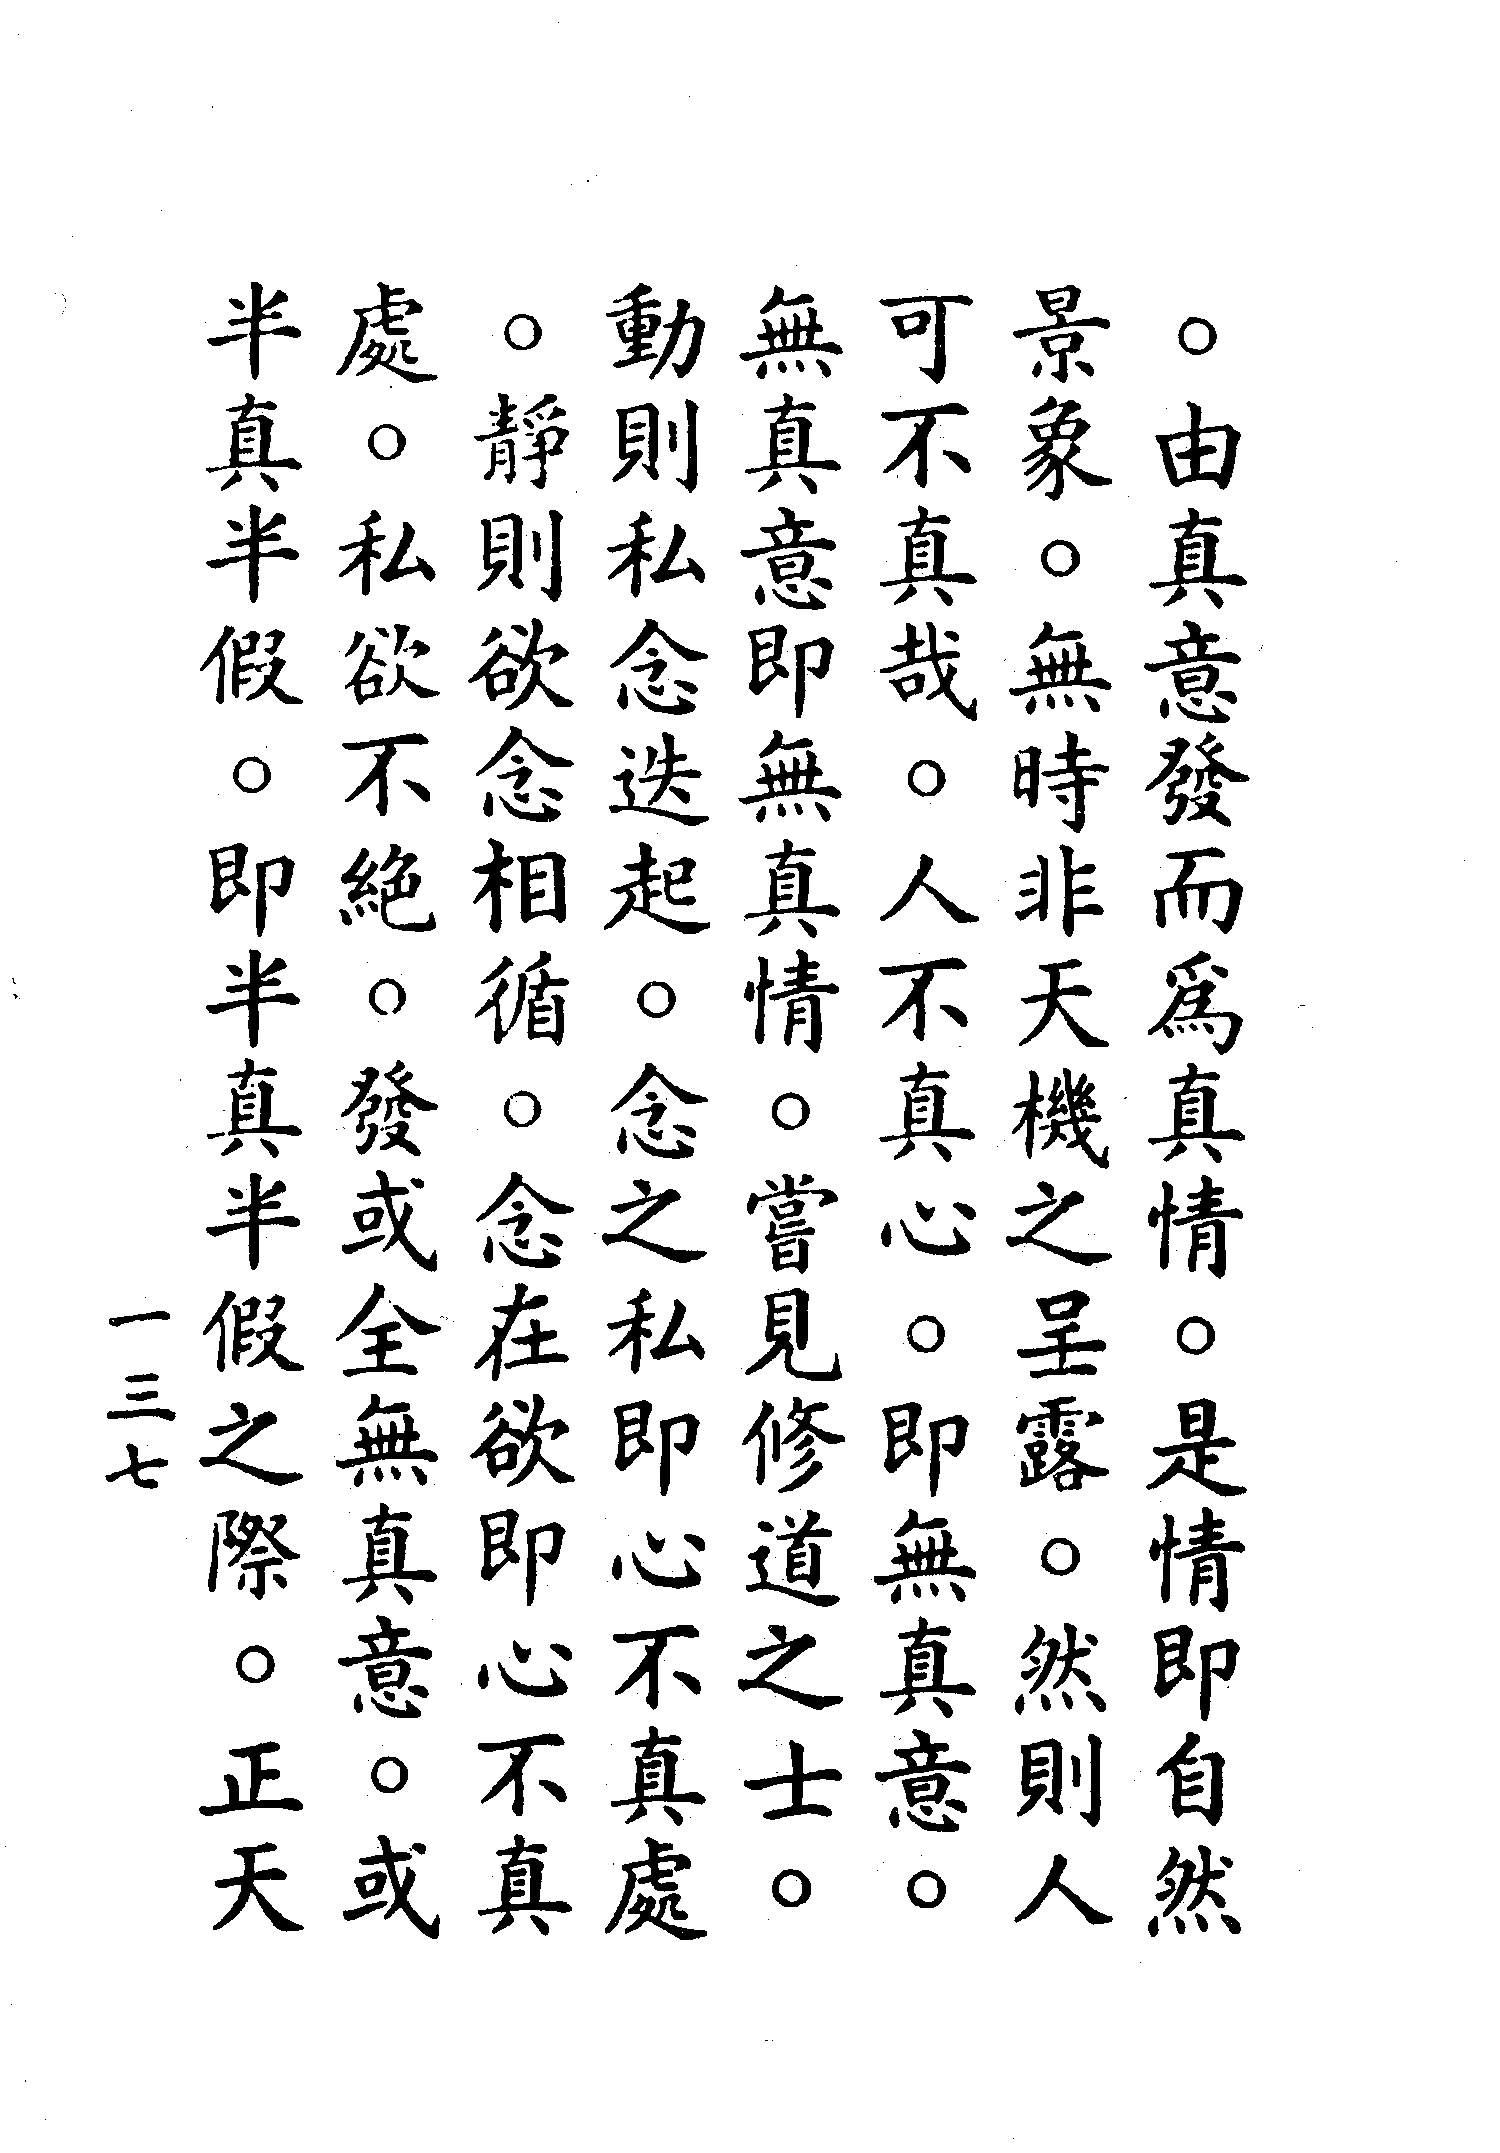 。由真意發而爲真情。是情即自然
景象。無時非天機之呈露。然則人
可不真哉。人不真心。即無真意。
無真意即無真情。嘗見修道之士。
動則私念迭起。念之私即心不真處
。靜則欲念相循。念在欲即心不真
處。私欲不絕。發或全無真意。或
半真半假。即半真半假之際。正天
一三七